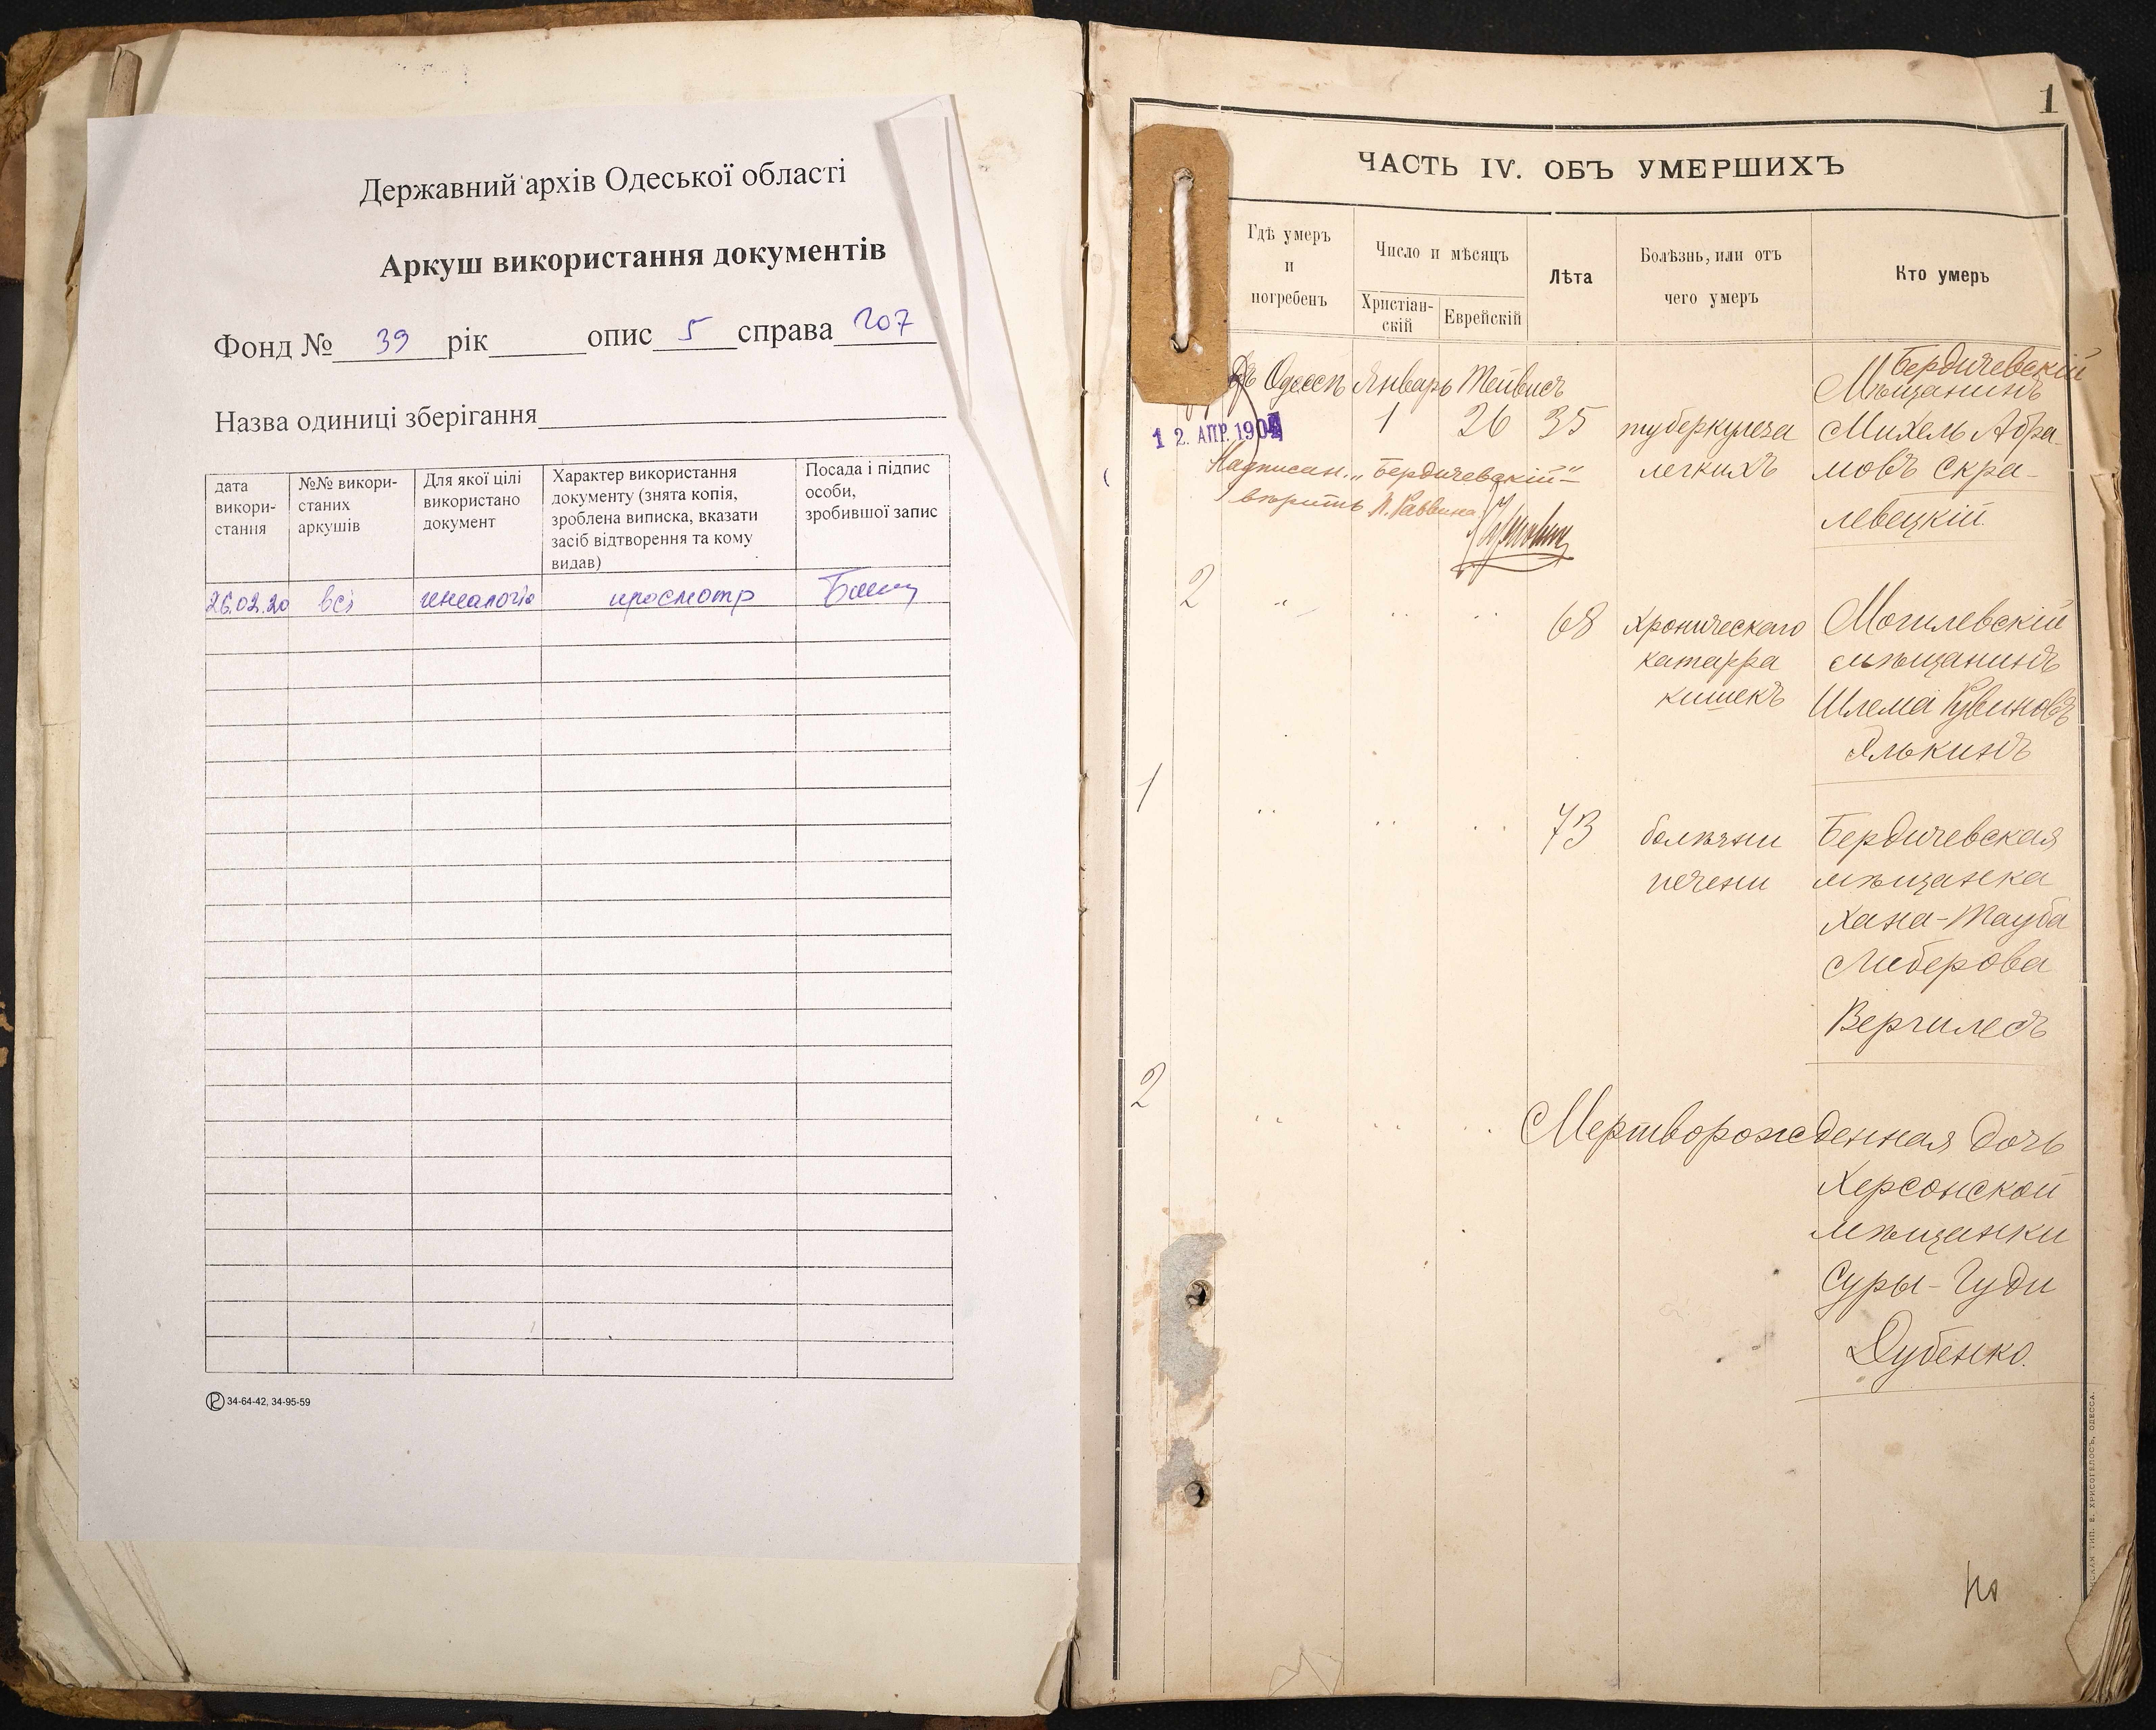 Державний архів Одеської області
Аркуш використання документів
Фонд № 39 рік опис 5 справа 207
Назва одиниці зберігання
дата
викори-
стання
№№ викори-
станих
аркушів
Для якої цілі
використано
документ
Характер використання
документу (знята копія,
зроблена виписка, вказати
засіб відтворення та кому
видав)
Посада і підпис
особи,
зробившої запис
26.02.20 всі генеалогія просмотр
34-64-42, 34-95-59
1
ЧАСТЬ IV. ОБЪ УМЕРШИХЪ
Гдѣ умеръ
и
погребенъ
Число и мѣсяцъ
Христіан-
скій
Еврейскій
Лѣта
Болѣзнь, или отъ
чего умеръ
Кто умеръ
Въ Одессѣ Январь Тейвисъ
1 26 35
туберкулеза
легкихъ
Бердичевскій
Мѣщанинъ
Михель Абра-
мовъ Скра-
левецкій.
12. АПР. 190
Надписан. „Бердичевскій"—
вѣрить И. Раввина
2 " " " 68
Хроническаго
катарра
кишекъ
Могилевскій
мѣщанинъ
Шлема
Элькинъ
1 " " " 73
болѣзни
печени
Бердичевская
мѣщанка
Хана-Тауба
Либерова
Вергилесъ
2 " " " Мертворожденная дочь
Херсонской
мѣщанки
Суры-Гуди
Дубенко.
ТИП. Е. ХРИСОГЕЛОСЪ, ОДЕССА.